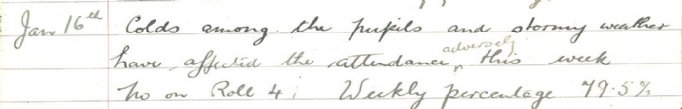 Jan 16th Colds among the pupils and stormy weather
have affected the attendance adversely this week
No on Roll 41 Weekly percentage 79.5%